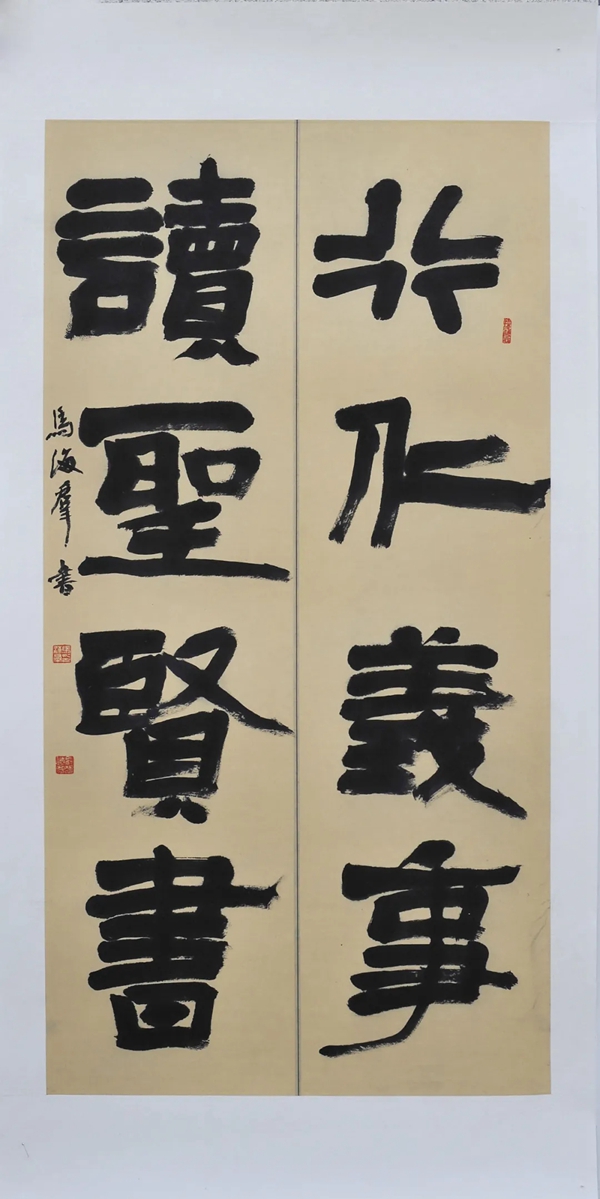 行仁義事
讀聖賢書
馬海群書